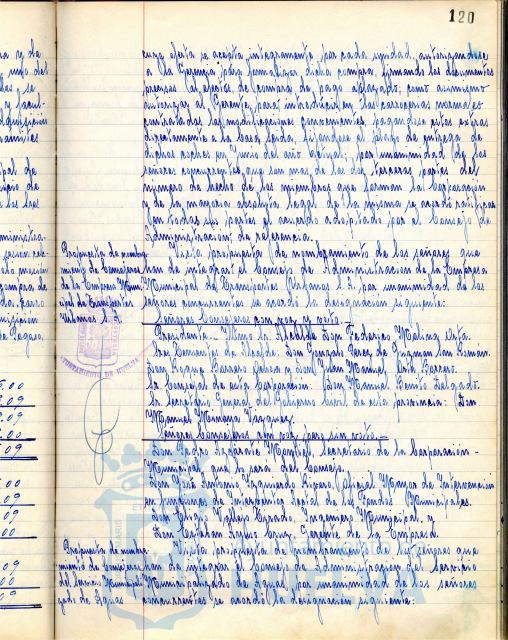 120
cuya oferta se acepta íntegramente por cada unidad, autorizándose
a la Gerencia para formalizar dicha compra, firmando los documentos
precisos al efecto de compra de pago aplazado; como asimismo
autorizar al Gerente para introducir en las carrocerías normales
contratadas las modificaciones convenientes, pagándose estos extras
directamente a la casa Seida, fijándose el plazo de entrega de
dichos coches en Junio del año actual; por unanimidad de los
señores concurrentes que son más de las dos terceras partes del
número de hecho de los miembros que forman la Corporación
y de la mayoría absoluta legal de la misma se acordó ratificar
en todas sus partes el acuerdo adoptado por el Consejo de
Administración, de referencia.
Propuesta de nombra-
miento de Consejeros
de la Empresa Muni-
cipal de Transportes
Urbanos S. A.
Vista propuesta de nombramiento de los señores que
han de integrar el Consejo de Administración de la Empresa
Municipal de Transportes Urbanos S. A. por unanimidad de los
señores concurrentes se acordó la designación siguiente:
Señores Consejeros con voz y voto.-
Presidente.- Ilmo Sr. Alcalde Don Federico Molina Orta.
Srs. Tenientes de Alcalde: Don Gonzalo Pérez de Guzmán San Román.
Don Roque Barrero y Don Juan Manuel Barrero.
Sr. Concejal de esta Corporación: Don Manuel Benito Delgado.
Sr. Secretario General del Gobierno Civil de esta provincia: Don
Manuel Vazquez.
Señores Consejeros con voz, pero sin voto.-
Don Pedro Montiel, Secretario de la Corporación
Municipal que lo será del Consejo.
Don José Antonio Izquierdo, Oficial Mayor de Intervención
en funciones de Interventor Actal de los Fondos Municipales.
Don Vallejo, Ingeniero Municipal, y
Don Esteban, Gerente de la Empresa.
Propuesta de nombra-
miento de Consejeros
del Servicio Municipali-
zado de Aguas
Vista propuesta de nombramiento de los señores que
han de integrar el Consejo de Administración del Servicio
Municipalizado de Aguas por unanimidad de los señores
concurrentes se acordó la designación siguiente:
AYUNTAMIENTO DE HUELVA
HUELVA